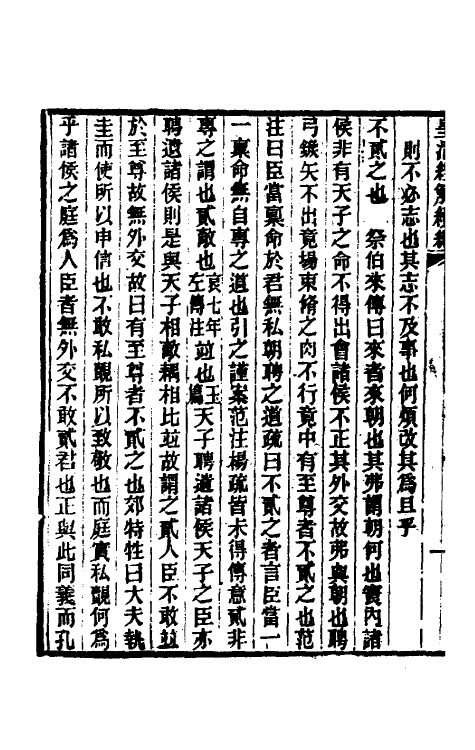 則不必志也其志不及事也何煩改其爲且乎
不貳之也　祭伯來傳曰來者來朝也其弗謂朝何也寰內諸
侯非有天子之命不得出會諸侯不正其外交故弗與朝也聘
弓鍭矢不出竟場束脩之肉不行竟中有至尊者不貳之也范
注曰臣當稟命於君無私朝聘之道疏曰不貳之者言臣當一
一稟命無自專之道也引之謹案范注楊疏皆未得傳意貳非
專之謂也貳敵也哀七年左傳注竝也玉篇天子聘遺諸侯天子之臣亦
聘遺諸侯則是與天子相敵耦相比竝故謂之貳人臣不敢竝
於至尊故無外交故曰有至尊者不貳之也郊特牲曰大夫執
圭而使所以申信也不敢私覿所以致敬也而庭實私覿何爲
乎諸侯之庭爲人臣者無外交不敢貳君也正與此同義而孔